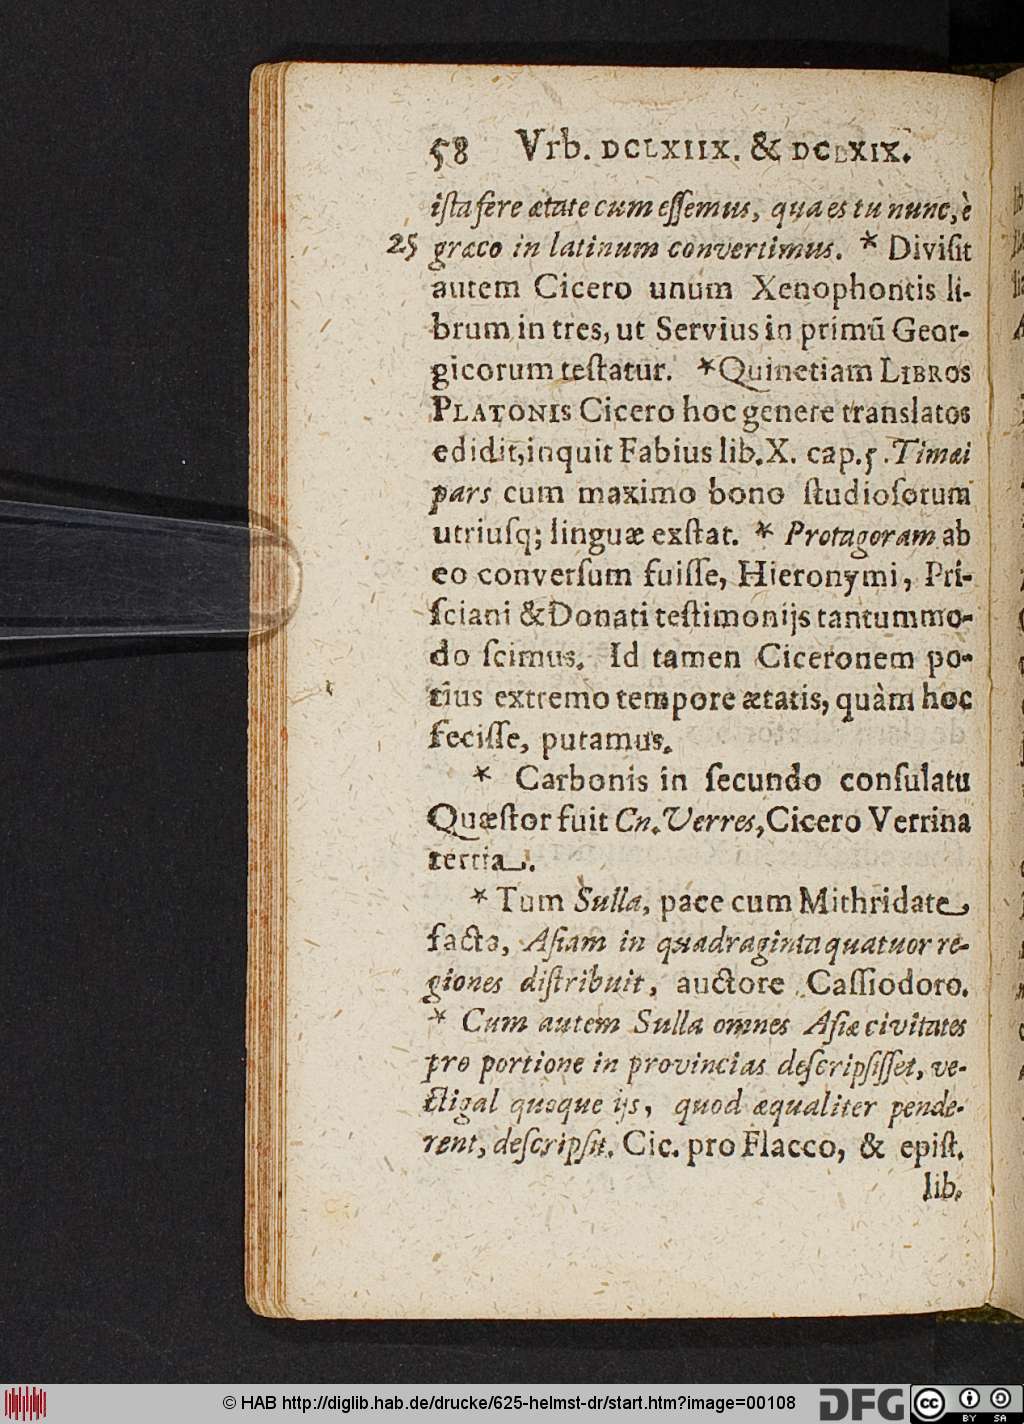 58 Vrb. DCLXIIX. & DCLXIX.
iſta fere ætate cum eſſemus, qua es tu nunc, è
25 græco in latinum convertimus. * Diviſit
autem Cicero unum Xenophontis li-
brum in tres, ut Servius in primū Geor-
gicorum teſtatur. * Quinetiam LIBROS
PLATONIS Cicero hoc genere translatos
edidit, inquit Fabius lib. X. cap. 5. Timæi
pars cum maximo bono ſtudioſorum
utriuſq; linguæ exſtat. * Protagoram ab
eo converſum fuiſſe, Hieronymi, Pri-
ſciani & Donati teſtimonijs tantummo-
do ſcimus. Id tamen Ciceronem po-
tius extremo tempore ætatis, quàm hoc
feciſſe, putamus.
* Carbonis in ſecundo conſulatu
Quæſtor fuit Cn. Verres, Cicero Verrina
tertia.
* Tum Sulla, pace cum Mithridate
facta, Aſiam in quadraginta quatuor re-
giones diſtribuit, auctore Caſſiodoro.
* Cum autem Sulla omnes Aſiæ civitates
pro portione in provincias deſcripſiſſet, ve-
ctigal quoque ijs, quod æqualiter pende-
rent, deſcripſit. Cic. pro Flacco, & epiſt.
lib.
© HAB http://diglib.hab.de/drucke/625-helmst-dr/start.htm?image=00108
DFG
cc
BY SA